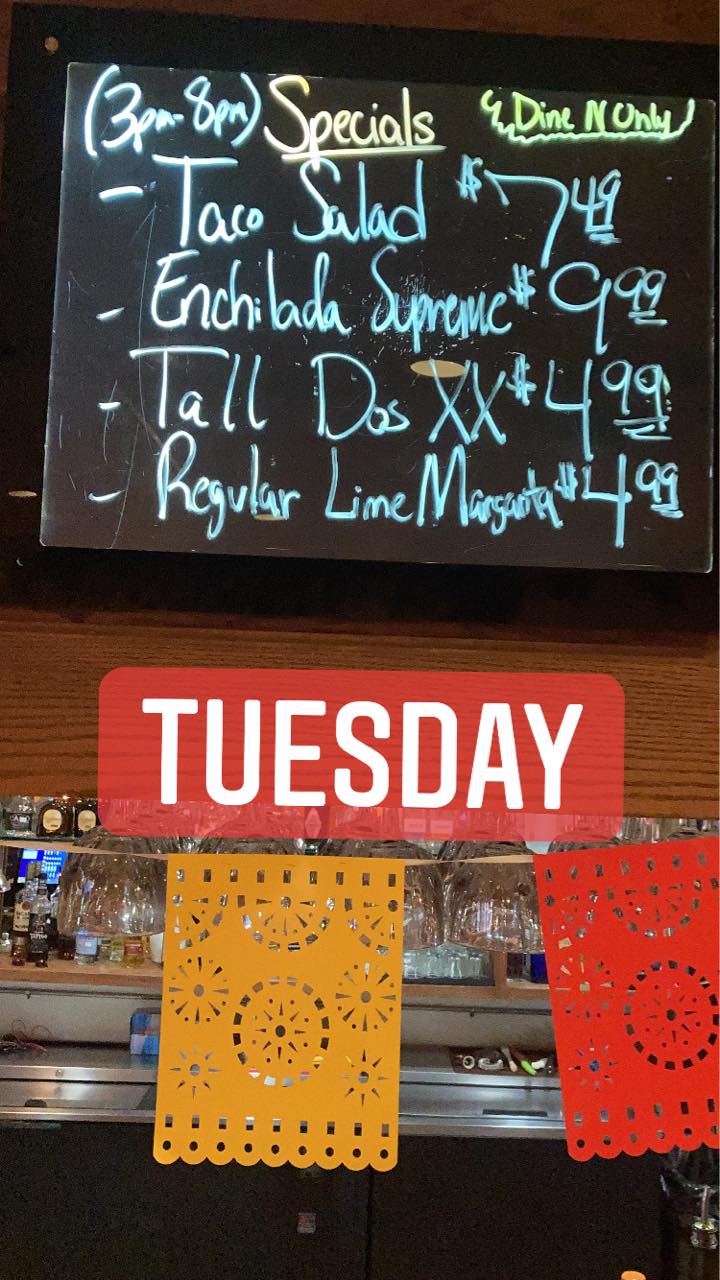 (3pm-8pm) Specials Dine N Only
- Taco Salad $7.49
- Enchilada Supreme $9.99
- Tall Dos XX $4.99
- Regular Lime Margarita $4.99
TUESDAY